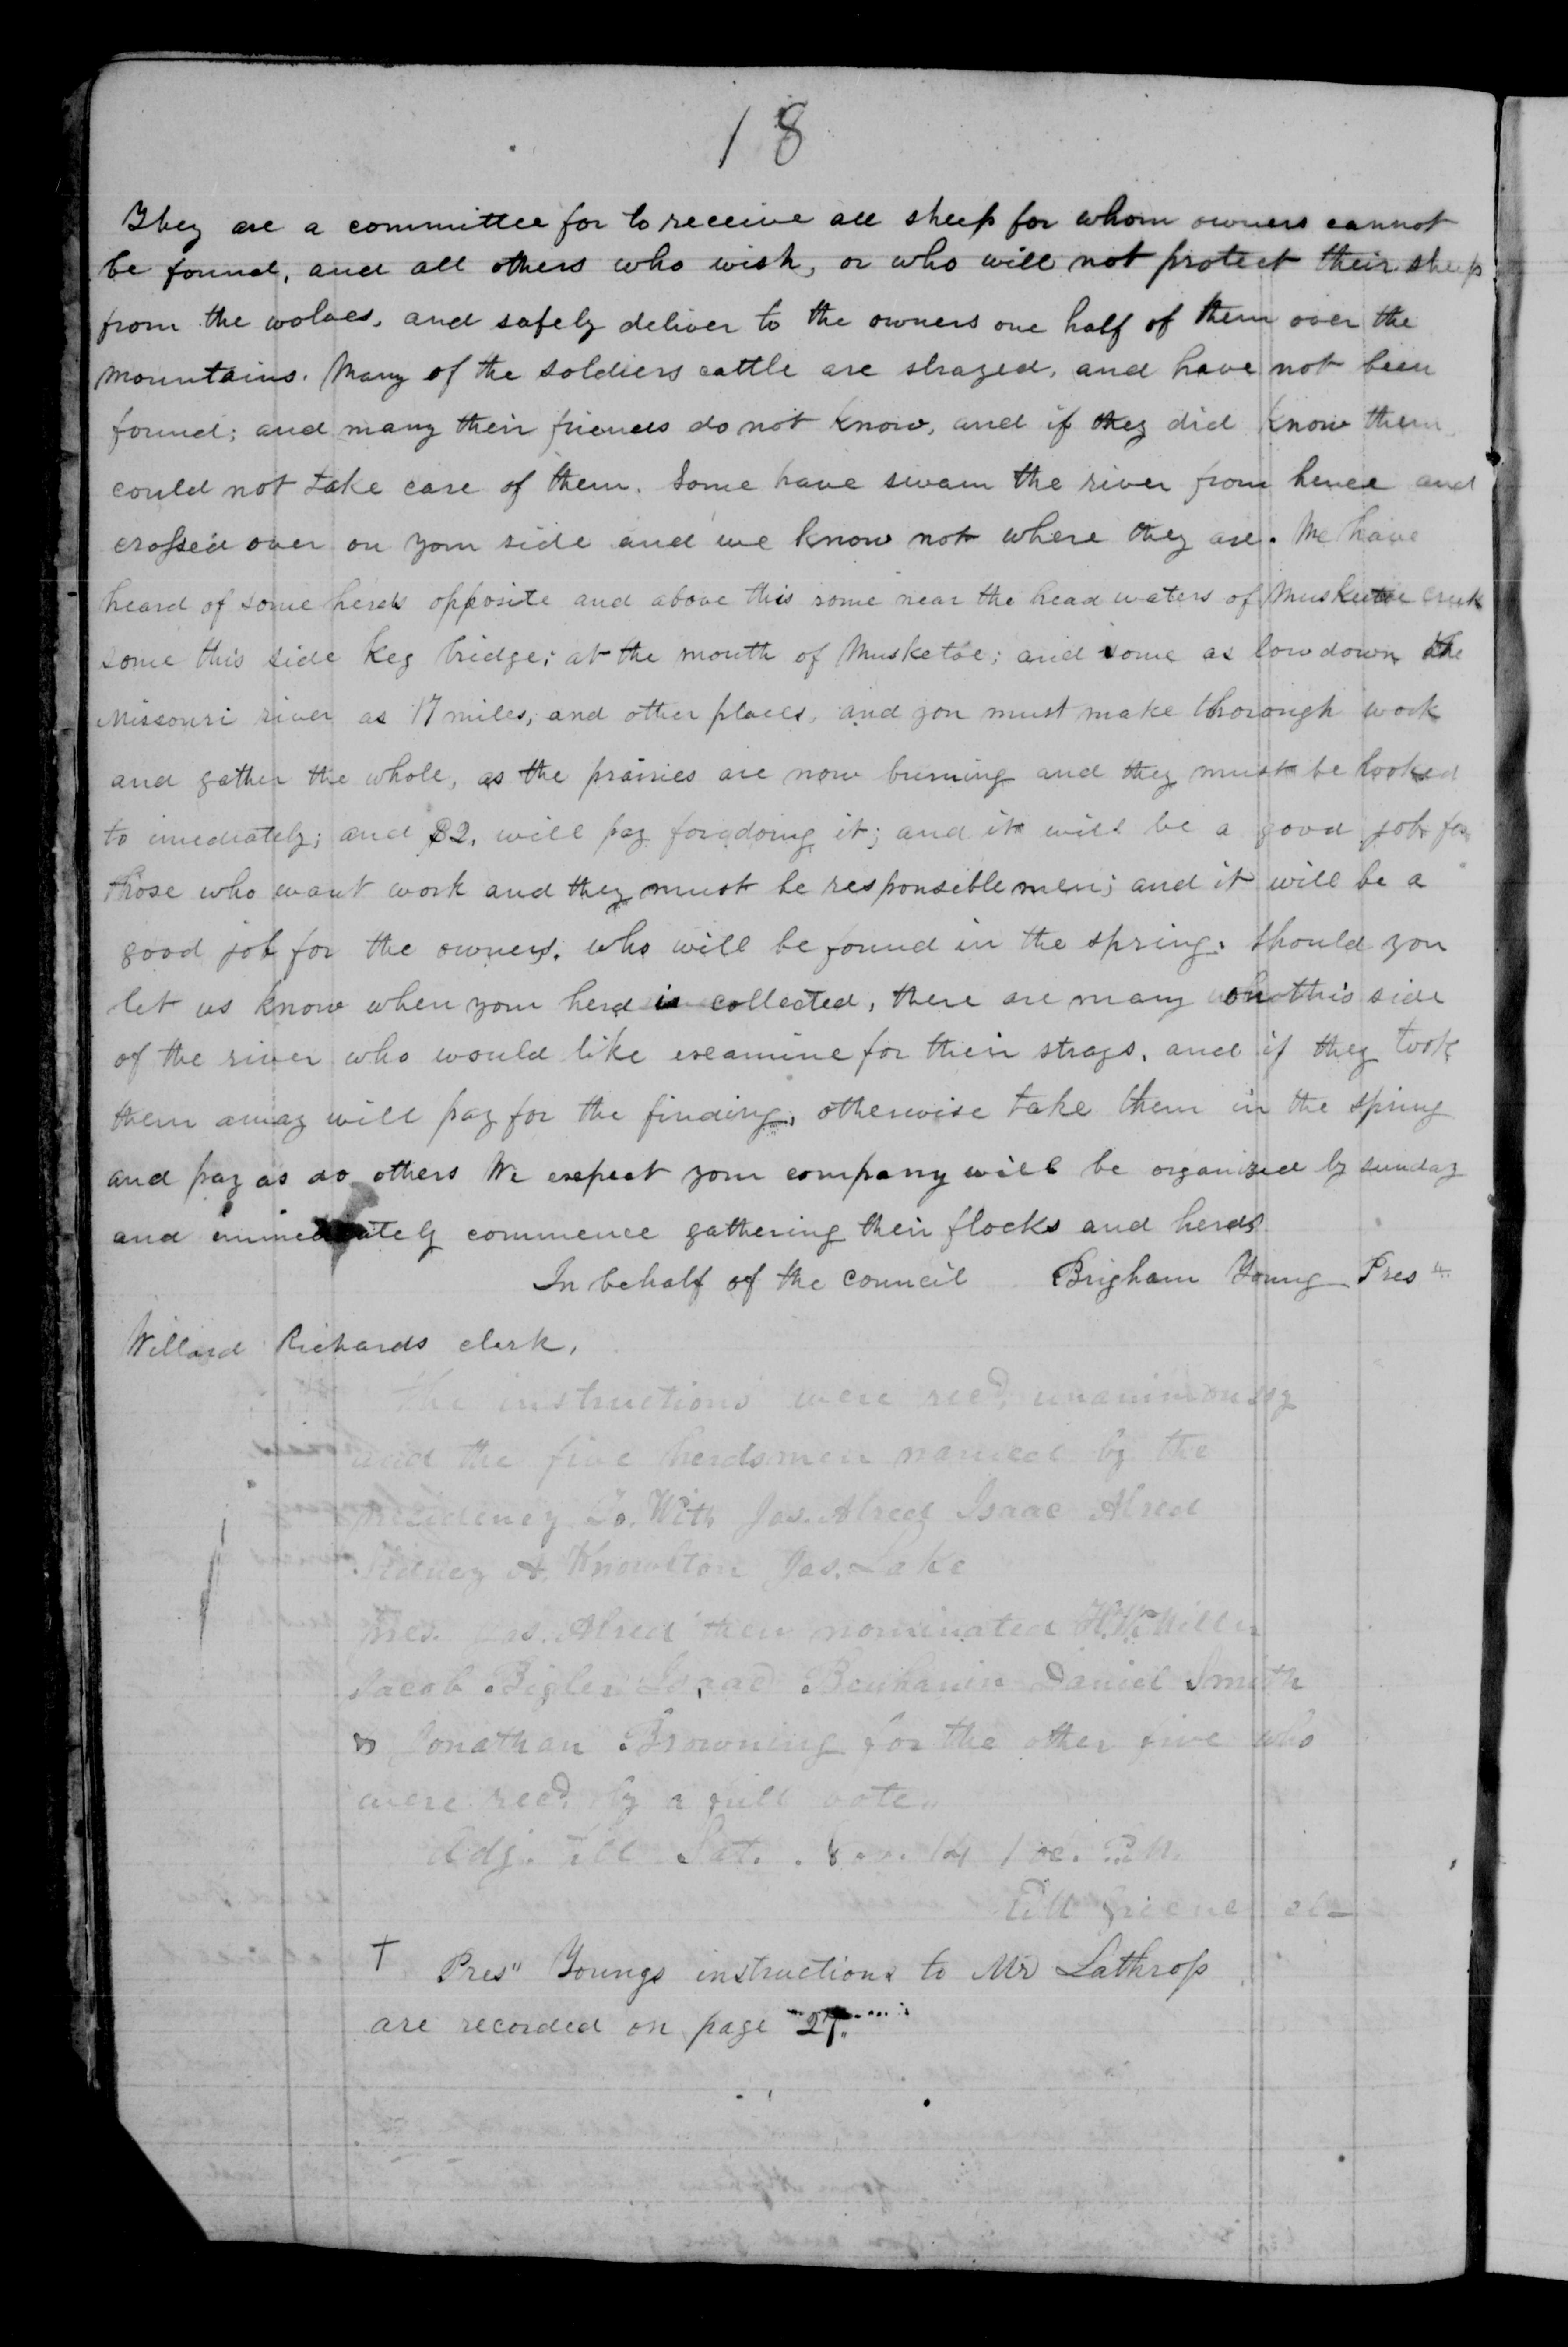 18
They are a committee for to receive all sheep for whom owners cannot
be found, and all others who wish, or who will not protect their sheep
from the wolves, and safely deliver to the owners one half of them over the
mountains. Many of the soldiers cattle are strayed, and have not been
found; and many their friends do not know, and if they did know them
could not take care of them. Some have swam the river from hence and
crossed over on your side and we know not where they are. We have
heard of some herds opposite and above this some near the head waters of Musketoe creek
some this side Keg bridge; at the mouth of Musketoe; and some as low down the
Missouri river as 17 miles, and other places, and you must make thorough work
and gather the whole, as the prairies are now burning and they must be looked
to imediately; and $2. will pay for doing it; and it will be a good job for
those who want work and they must be responsible men; and it will be a
good job for the owners. who will be found in the spring. Should you
let us know when your herd is collected, there are many on this side
of the river who would like examine for their strays, and if they took
them away will pay for the finding, otherwise take them in the spring
and pay as do others We expect your company will be organized by sunday
and immediately commence gathering their flocks and herds
In behalf of the council Brigham Young Pres
Willard Richards clerk,
The instructions were recd. unanimously
and the five herdsmen named by the
Presidency To. With Jas. Alred Isaac Alred
Sidney A. Knowlton Jas. Lake
Pres. Jas. Alred then nominated H.W. Miller
Jacob Bigler Isaac Benhamin Daniel Smith
& Jonathan Browning for the other five who
were recd. by a full vote
Adj. till Sat. 14 1 oc. P.M.
Greene
† Pres" Youngs instructions to Mr Lathrop
are recorded on page 27.